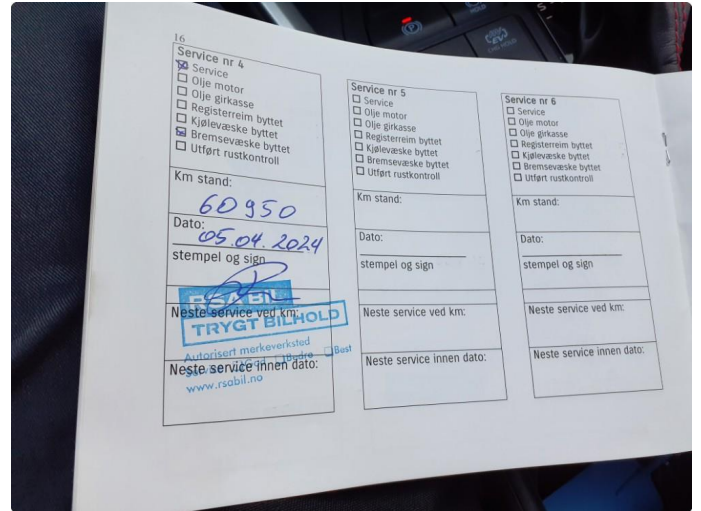 16
Service nr 4
Service
Olje motor
Olje girkasse
Registerreim byttet
Kjølevæske byttet
Bremsevæske byttet
Utført rustkontroll
Km stand:
60950
Dato:
05.04.2024
stempel og sign
RSA BIL
TRYGT BILHOLD
Neste service ved km:
Autorisert merkeverksted
God Bedre Best
Neste service innen dato:
www.rsabil.no
Service nr 5
Service
Olje motor
Olje girkasse
Registerreim byttet
Kjølevæske byttet
Bremsevæske byttet
Utført rustkontroll
Km stand:
Dato:
stempel og sign
Neste service ved km:
Neste service innen dato:
Service nr 6
Service
Olje motor
Olje girkasse
Registerreim byttet
Kjølevæske byttet
Bremsevæske byttet
Utført rustkontroll
Km stand:
Dato:
stempel og sign
Neste service ved km:
Neste service innen dato: